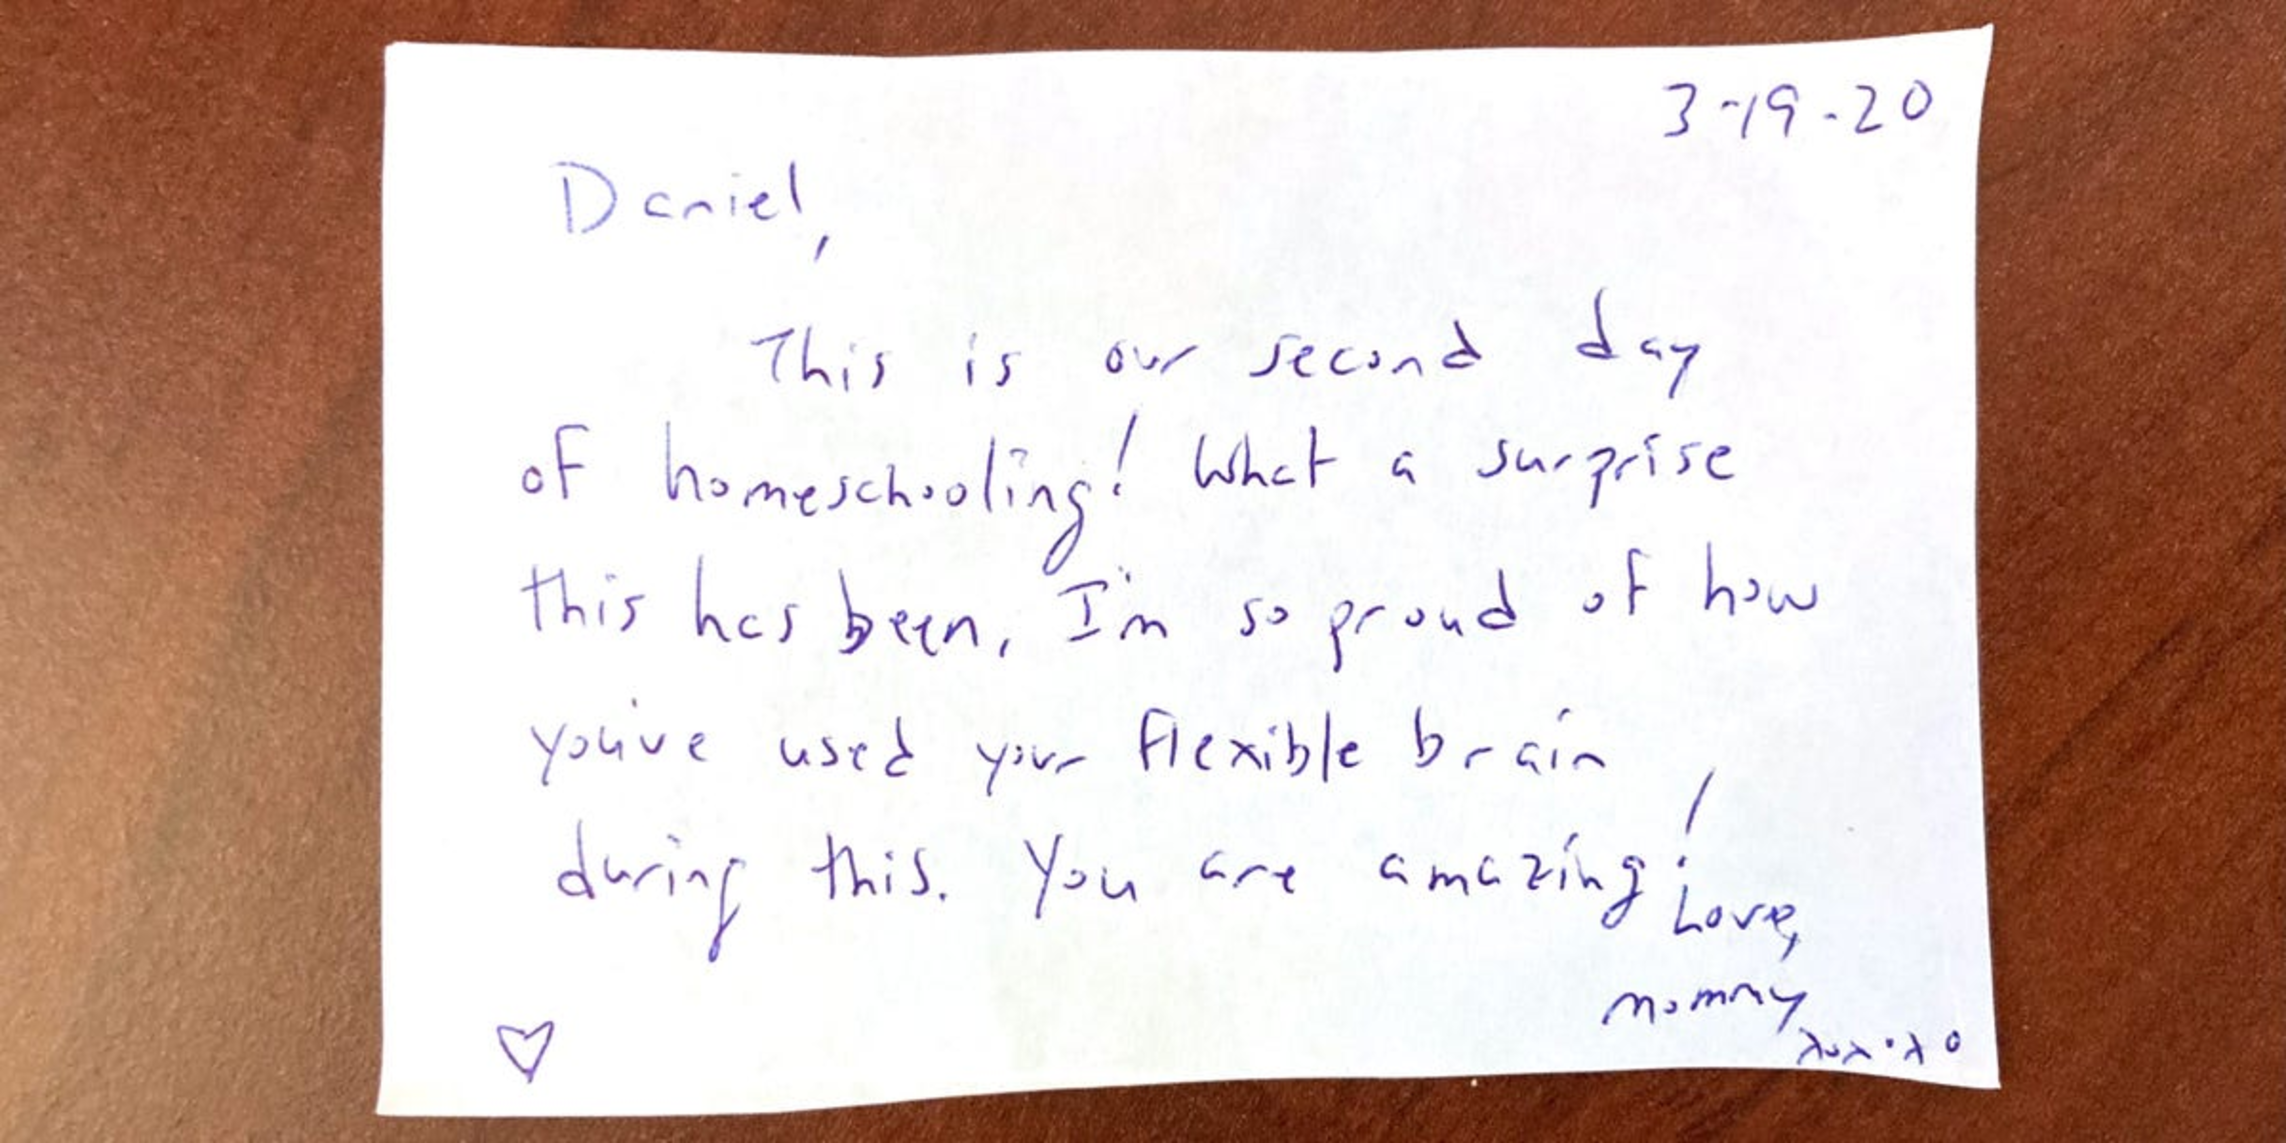 3-19-20
Daniel,
This is our second day
of homeschooling! What a surprise
this has been. I'm so proud of how
you've used your flexible brain
during this. You are amazing!
Love,
Mommy
xoxoxo